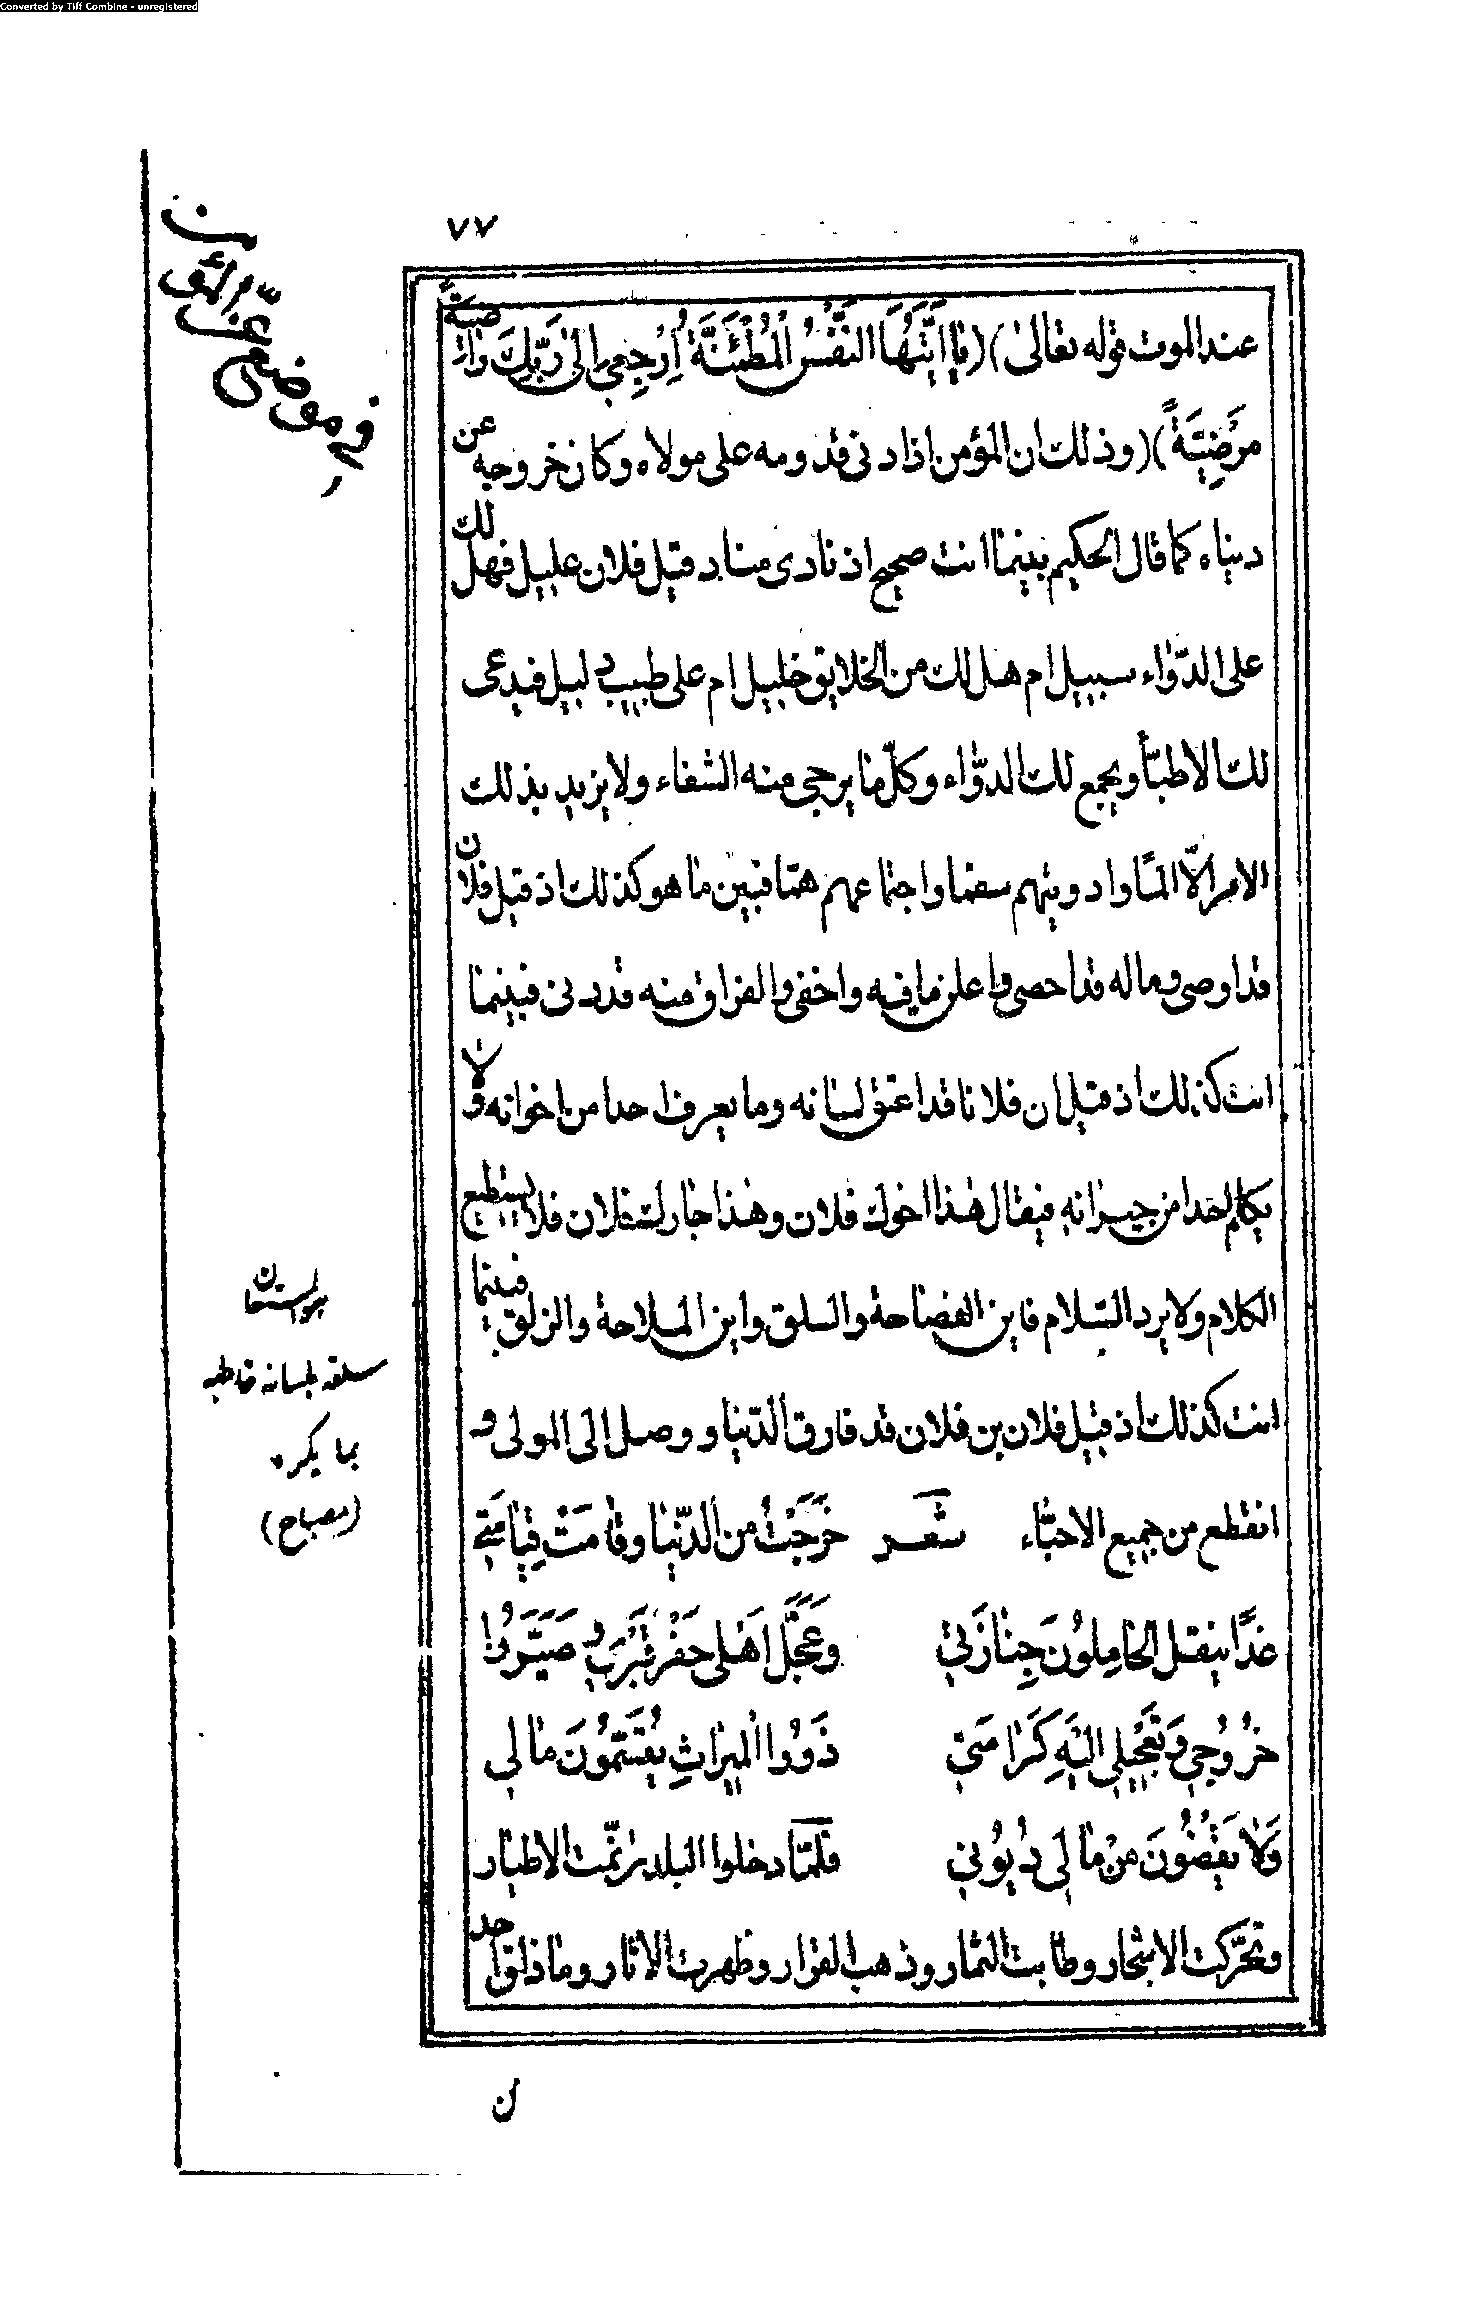 Converted by Tiff Combine - unregistered
٧٧
في موضع عز المؤمن
عند الموت قوله تعالى) (يَا اَيَّتُهَا النَّفْسُ الْمُطْمَئِنَّةُ اِرْجِعِي اِلىٰ رَبِّكِ رَاضِيَةً
مَرْضِيَّةً) (وذلك ان المؤمن اذا دنى قدومه على مولاه وكان خروجه عن
دنياه كما قال الحكيم بينما انت صحيح اذ نادى مناد قيل فلان عليل فهل لك
على الدّواء سبيل ام هل لك من الخلايق خليل ام على طبيب دليل فيدعى
لك الاطبّأ ويجمع لك الدوّاء وكلّ ما يرجى منه الشفاء ولا يزيد بذلك
الامر الّا المًا وادويتهم سقما واجتماعهم همّا فبين ما هو كذلك اذ قيل فلان
قد اوصى وماله قد احصى واعلن ما فيه واخفى والفراق منه قد دنى فبينما
انت كذلك اذ قيل ان فلانا قد اعتق لسانه وما يعرف احدا من اخوانه ولا
يكلم احدا من جيرانه فيقال هذا اخوك فلان وهذا جارك فلان فلا يستطيع
الكلام ولا يرد السّلام فاين الفصاحة والسلق واين الملاحة والزلق فبينما
انت كذلك اذ قيل فلان بن فلان قد فارق الدّنيا و وصل الى المولى و
انقطع من جميع الاحبّاء شعر خَرَجْتُ من الدّنيا وقَامَتْ قِيَامَتِي
غدًا ينقل الحَامِلُونَ جِنَازَتِي وَعَجَّلَ اَهْلى حَفْرَ قَبْرِي وَصَيَّرُوا
خُرُوجِي وَتَعْجِيلِي اِلَيْهِ كَرَامَتِي ذَوُوا الْمِيرَاثِ يَقْتَسِمُونَ مَالِي
وَلَا يَقْضُونَ مِنْ مَالِي دُيُونِي فلمّا دخلوا البلد ترنّمت الاطيار
وتحرّكت الاشجار وطابت الثمار وذهب القرار وظهرت الاثار وماذاقوا حد
سلقه بلسانه خاطبه
بما يكره
(مصباح)
ن